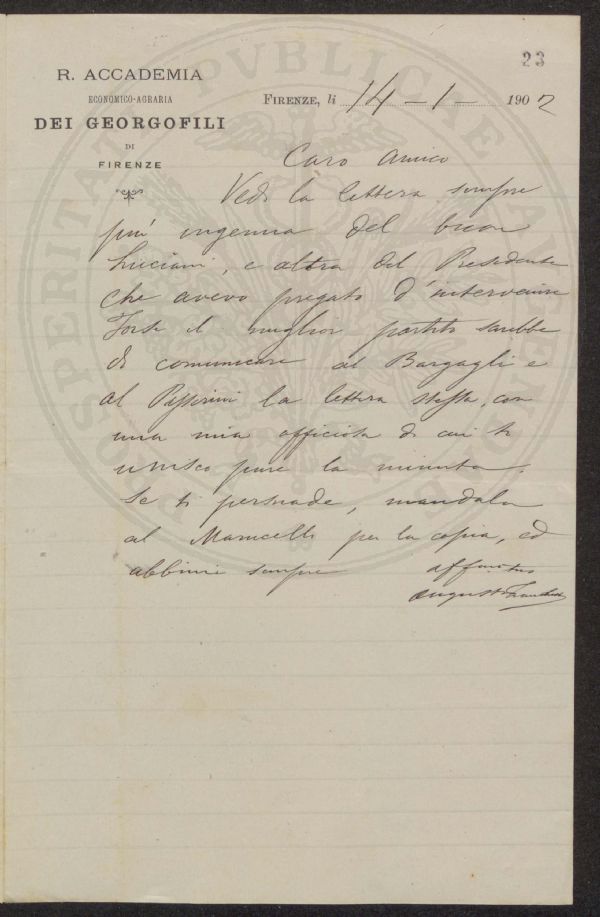 23
R. ACCADEMIA
ECONOMICO-AGRARIA
DEI GEORGOFILI
DI
FIRENZE
FIRENZE, li 14 - 1 - 1902
Caro Amico
Vedi la lettera sempre
più ingenua del buon
Luciani, e altra del Presidente
che avevo pregato d'intervenire
Forse il miglior partito sarebbe
di comunicare al Bargagli e
al Passerini la lettera stessa, con
una mia officiosa di cui ti
unisco pure la minuta.
Se ti persuade, mandala
al Marucelli per la copia, ed
abbimi sempre affmo tuo
Augusto Franchetti
PROSPERITATI PUBLICAE AUGENDAE